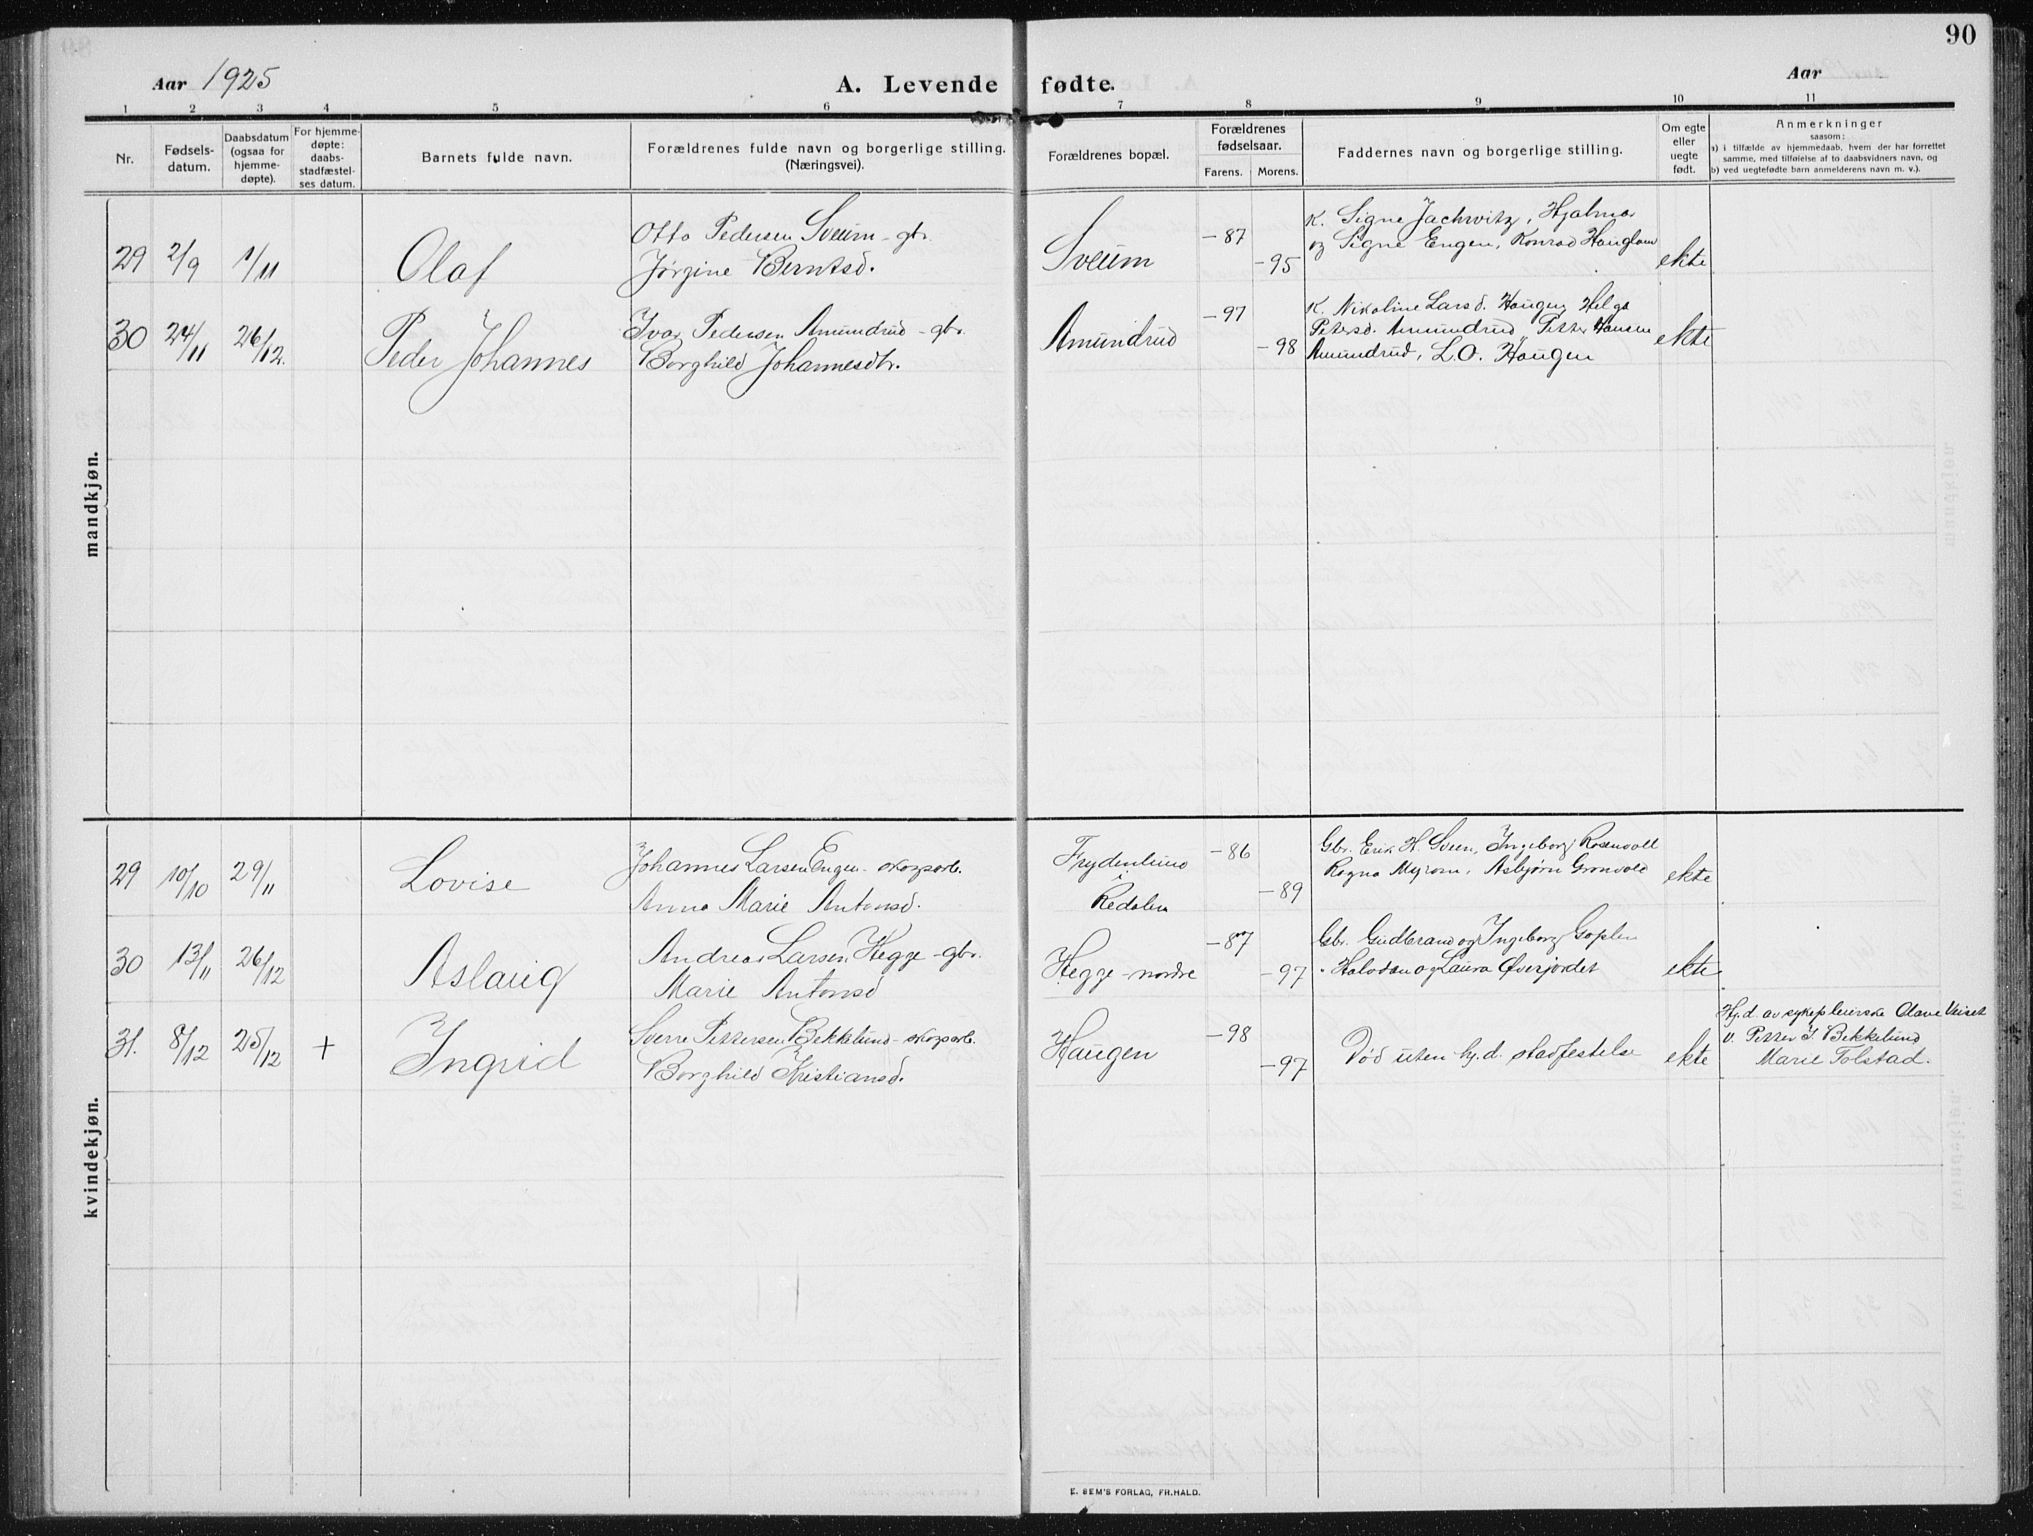 90
Aar 1925
A. Levende fødte.
Aar
1 2 3 4 5 6 7 8 9 10 11
Nr.
Fødsels-
datum.
Daabsdatum
(ogsaa for
hjemme-
døpte).
For hjemme-
døpte:
daabs-
stadfæstel-
ses datum.
Barnets fulde navn.
Forældrenes fulde navn og borgerlige stilling.
(Næringsvei).
Forældrenes bopæl.
Forældrenes
fødselsaar.
Farens. Morens.
Faddernes navn og borgerlige stilling.
Om egte
eller
uegte
født.
Anmerkninger
saasom:
a) i tilfælde av hjemmedaab, hvem der har forrettet
samme, med tilføielse af to daabsvidners navn, og
b) ved uegtefødte barn anmelderens navn m. v.).
mandkjøn.
29 2/9 1/11 Olaf
Otto Pedersen Sveum - gbr.
Jørgine Berntsd.
Sveum -87 -95
K. Signe Jachwitz, Hjalmar
og Signe Engen, Konrad Hauglum
ekte
30 24/11 26/12. Peder Johannes
Ivar Pedersen Amundrud - gbr.
Borghild Johannesdtr.
Amundrud -97 -98
K. Nikoline Larsd. Haugen, Helga
Petersd. Amundrud, Petter Hansen
Amundrud, L.O. Haugen
ekte
kvindekjøn.
29 10/10 29/11 Lovise
Johannes Larsen Engen - skogsarb.
Anna Marie Antonsd.
Frydenlund
i
Redalen
-86 -89
Gbr. Erik H. Sveen, Ingeborg Rosenvoll
Ragna Myrom, Asbjørn Grønvold
ekte
30 13/11 26/12 Aslaug
Andreas Larsen Hegge - gbr.
Marie Antonsd
Hegge - nordre -87 -97
Gbr. Gudbrand og Ingeborg Goplen
" Halvdan og Laura Øverjordet
ekte
31. 8/12 25/12 + Ingrid
Sverre Pettersen Bekkelund - skogsarb.
Borghild Kristiansd.
Haugen -98 -97
Død uten hj.d. stadfestelse
ekte
Hj.d. av sykepleierske Olava Veiset
v. Petter J. Bekkelund
Marie Tolstad.
E. SEM'S FORLAG, FR.HALD.